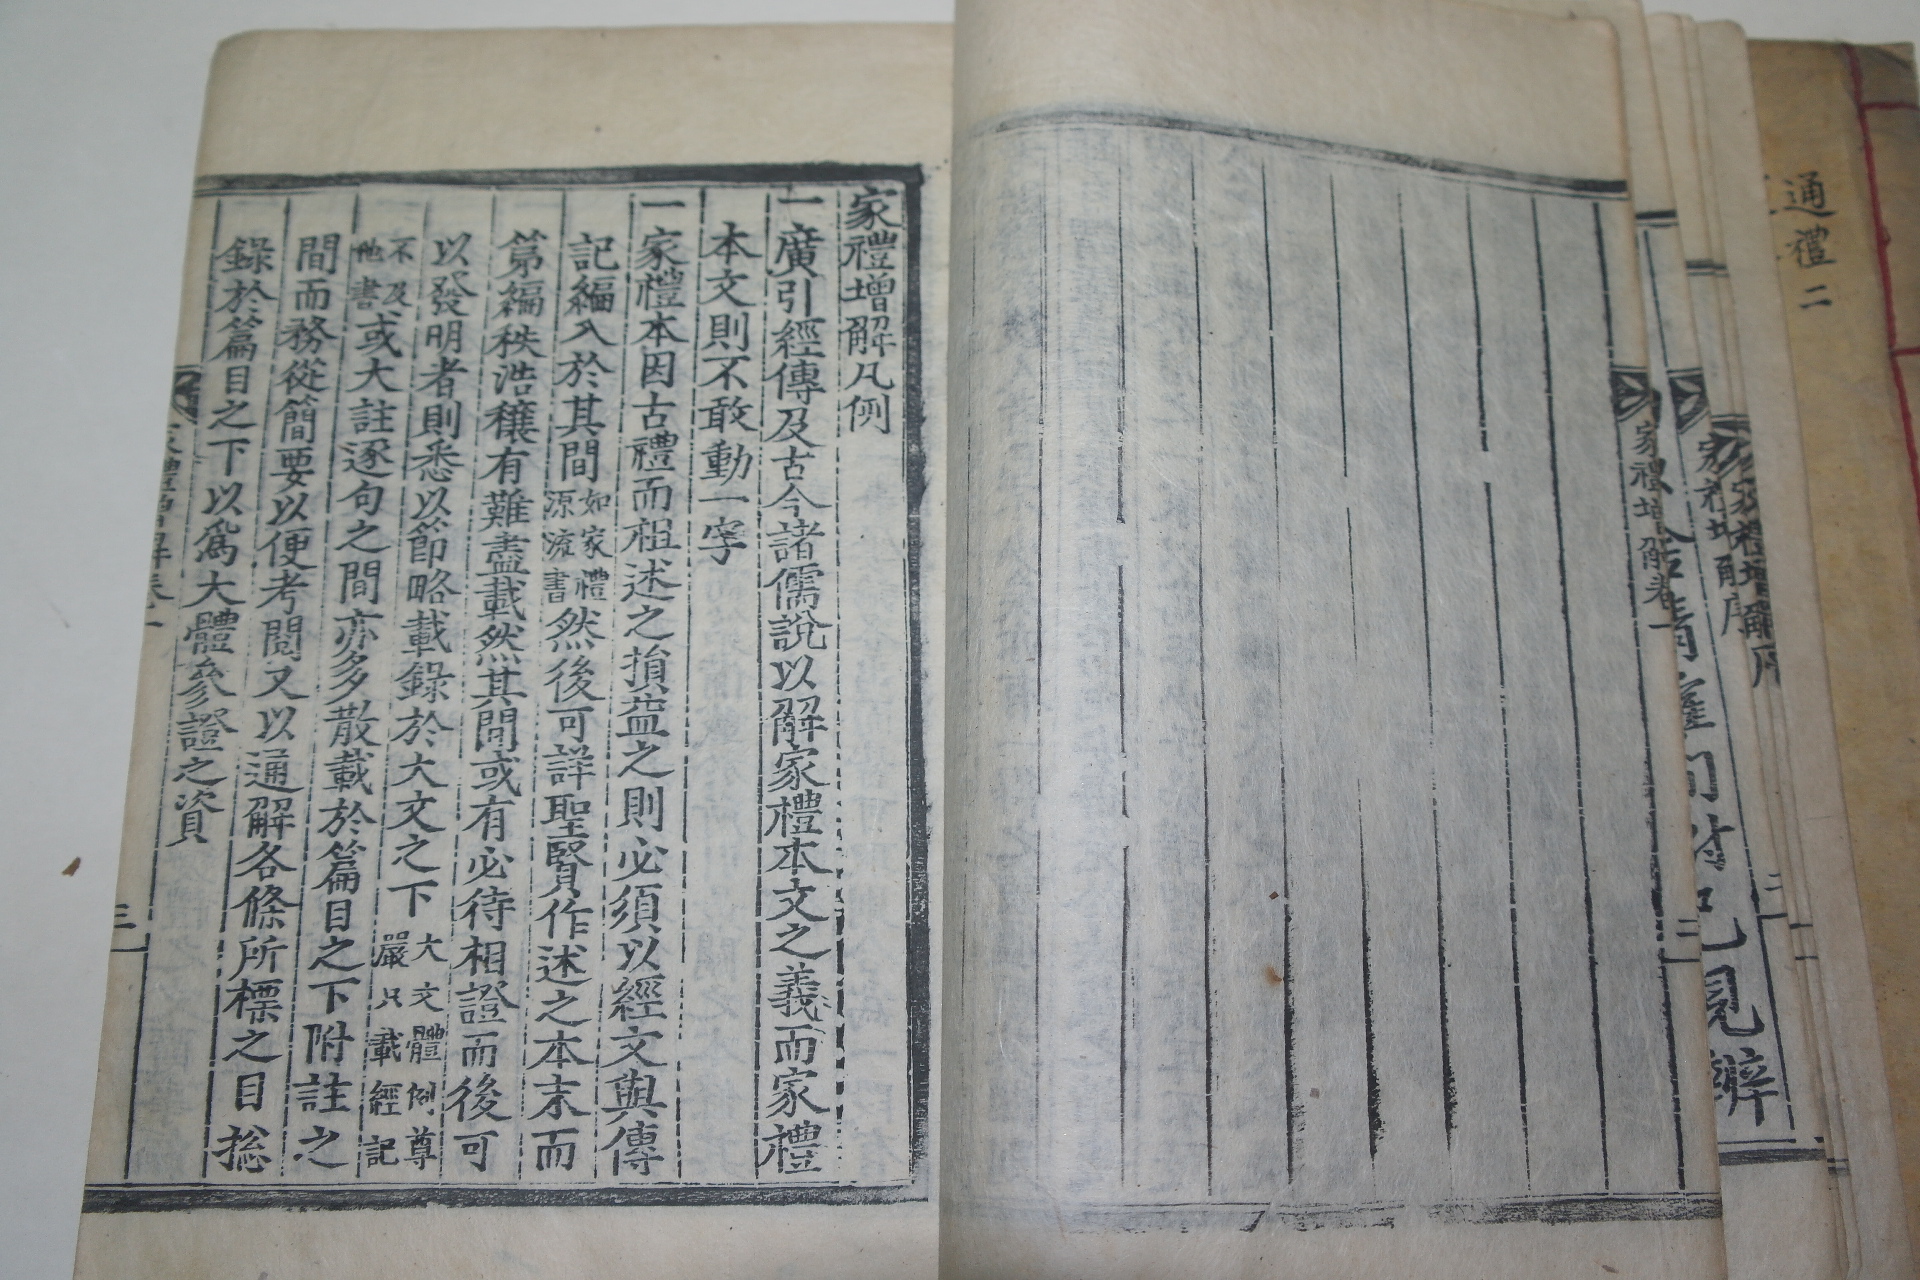 通禮二
家禮增解序
家禮增解卷一
二
見辨
家禮增解凡例
一廣引經傳及古今諸儒說以解家禮本文之義而家禮
本文則不敢動一字
一家禮本因古禮而祖述之損益之則必須以經文與傳
記編入於其間如家禮源流書然後可詳聖賢作述之本末而
第編秩浩穰有難盡載然其間或有必待相證而後可
以發明者則悉以節略載錄於大文之下大文體例尊嚴只載經記
不及他書或大註逐句之間亦多散載於篇目之下附註之
間而務從簡要以便考閱又以通解各條所標之目捴
錄於篇目之下以爲大體參證之資
家禮增解卷一
三